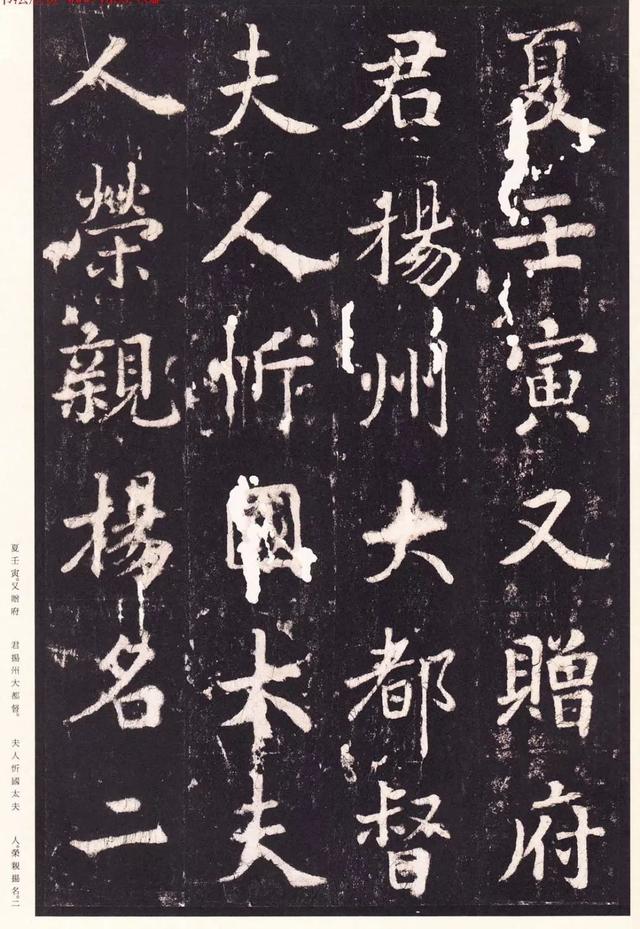 夏壬寅又贈府
君揚州大都督
夫人忻國太夫
人榮親揚名二
夏壬寅。又贈府 君揚州大都督。 夫人忻國太夫 人。榮親揚名。二